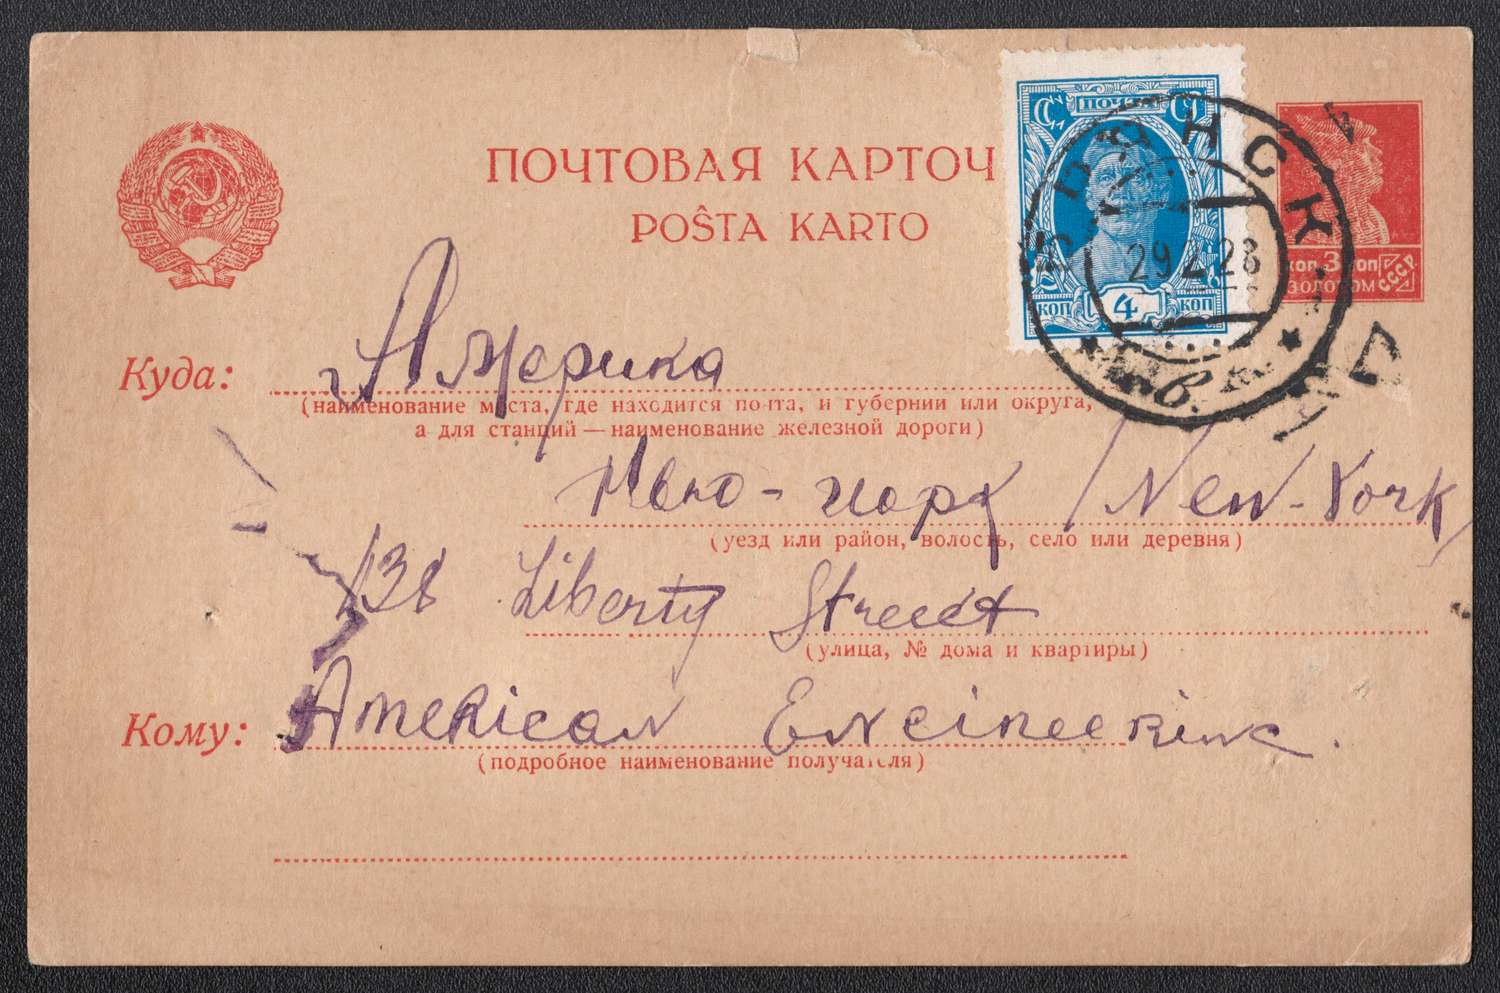 ПОЧТОВАЯ КАРТОЧ
POŜTA KARTO
ПОЧТА
4
КОП КОП
БРЯНСК
29 2 28
КОП 3 КОП
ЗОЛОТОМ СССР
Куда: Америка
(наименование места, где находится почта, и губернии или округа,
а для станций — наименование железной дороги)
Нью-Иорк / New-York /
(уезд или район, волость, село или деревня)
138 Liberty Street
(улица, № дома и квартиры)
Кому: American Encineerinc.
(подробное наименование получателя)